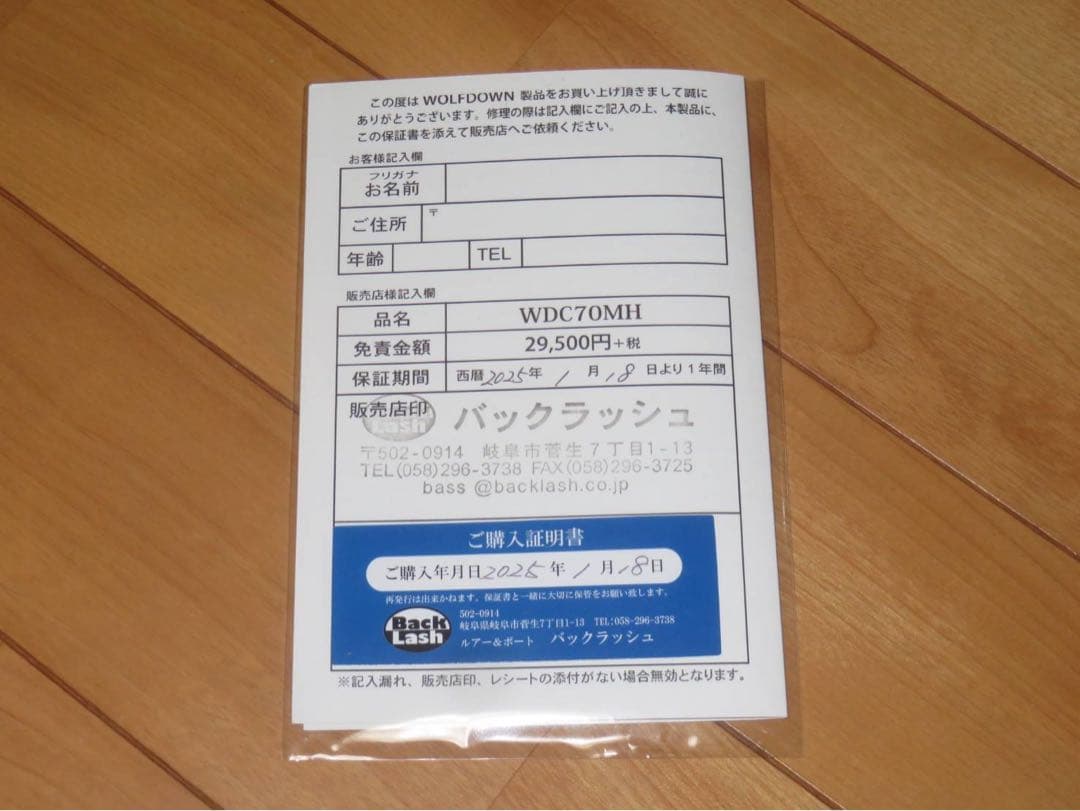 この度は WOLFDOWN 製品をお買い上げ頂きまして誠に
ありがとうございます。修理の際は記入欄にご記入の上、本製品に、
この保証書を添えて販売店へご依頼ください。
お客様記入欄
フリガナ
お名前
ご住所 〒
年齢 TEL
販売店様記入欄
品名 WDC70MH
免責金額 29,500円+税
保証期間 西暦2025年 1 月 18 日より1年間
販売店印 Lash バックラッシュ
〒502-0914 岐阜市菅生7丁目1-13
TEL(058)296-3738 FAX(058)296-3725
bass @backlash.co.jp
ご購入証明書
ご購入年月日2025年 1 月 18日
再発行は出来かねます。保証書と一緒に大切に保管をお願い致します。
Back Lash
502-0914
岐阜県岐阜市菅生7丁目1-13 TEL:058-296-3738
ルアー&ボート バックラッシュ
※記入漏れ、販売店印、レシートの添付がない場合無効となります。